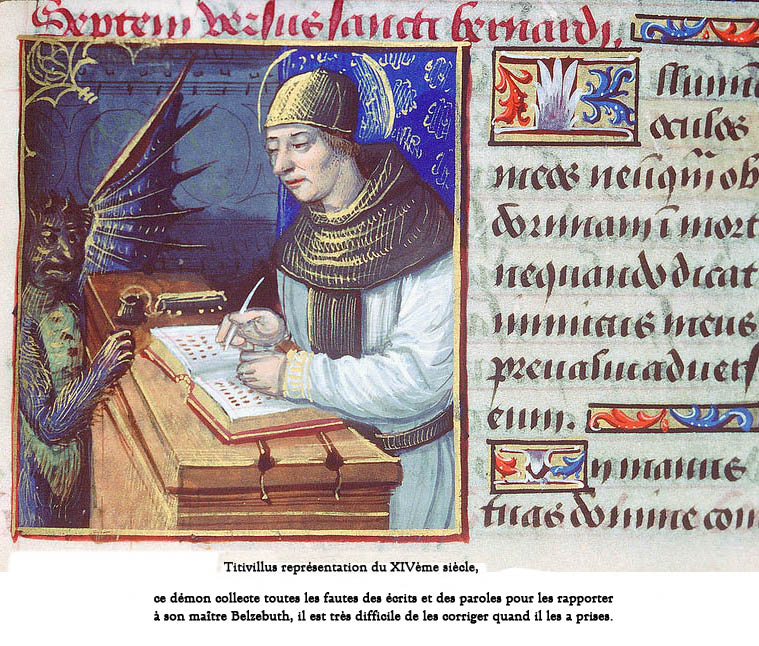 Septem versus sancti bernardi.
Illumin
oculos
meos ob
dormiam ī mort
nequando dicat
inimicus meus
preualui aduers
eum.
In manus
tuas domine com
Titivillus représentation du XIVème siècle,
ce démon collecte toutes les fautes des écrits et des paroles pour les rapporter
à son maître Belzebuth, il est très difficile de les corriger quand il les a prises.